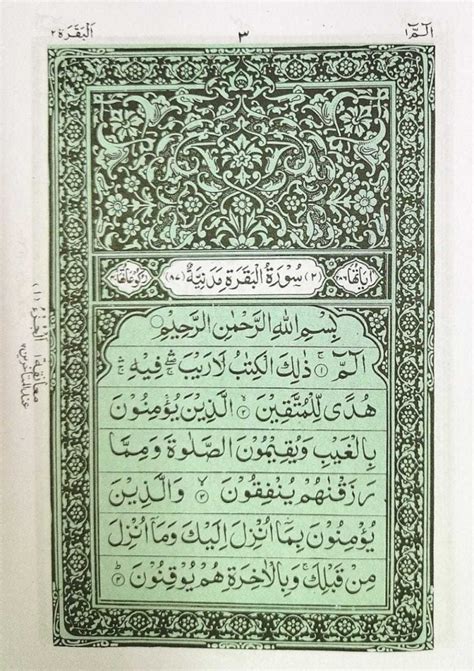 الٓمّٓ ١
٣
الْبَقَرَة ٢
اٰيَاتُهَا ٢٨٦
(٢) سُوْرَةُ الْبَقَرَةِ مَدَنِيَّةٌ (٨٧)
رُكُوْعَاتُهَا ٤٠
بِسْمِ اللّٰهِ الرَّحْمٰنِ الرَّحِيْمِ
الٓمّٓ ۚ ١ ذٰلِكَ الْكِتٰبُ لَا رَيْبَ ۛ فِيْهِ ۛ
هُدًى لِّلْمُتَّقِيْنَ ۙ ٢ الَّذِيْنَ يُؤْمِنُوْنَ
بِالْغَيْبِ وَيُقِيْمُوْنَ الصَّلٰوةَ وَمِمَّا
رَزَقْنٰهُمْ يُنْفِقُوْنَ ۙ ٣ وَالَّذِيْنَ
يُؤْمِنُوْنَ بِمَآ اُنْزِلَ اِلَيْكَ وَمَآ اُنْزِلَ
مِنْ قَبْلِكَ ۚ وَبِالْاٰخِرَةِ هُمْ يُوْقِنُوْنَ ۗ ٤
الْجُزْءُ (١)
معانقة ١
عند المتاخرين ١٢